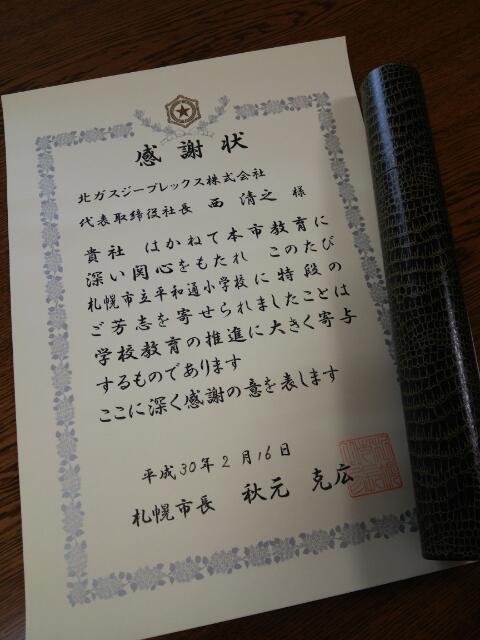 感謝状
北ガスジープレックス株式会社
代表取締役社長 西 清之 様
貴社 はかねて本市教育に
深い関心をもたれ このたび
札幌市立平和通小学校に特段の
ご芳志を寄せられましたことは
学校教育の推進に大きく寄与
するものであります
ここに深く感謝の意を表します
平成30年2月16日
札幌市長 秋元 克広